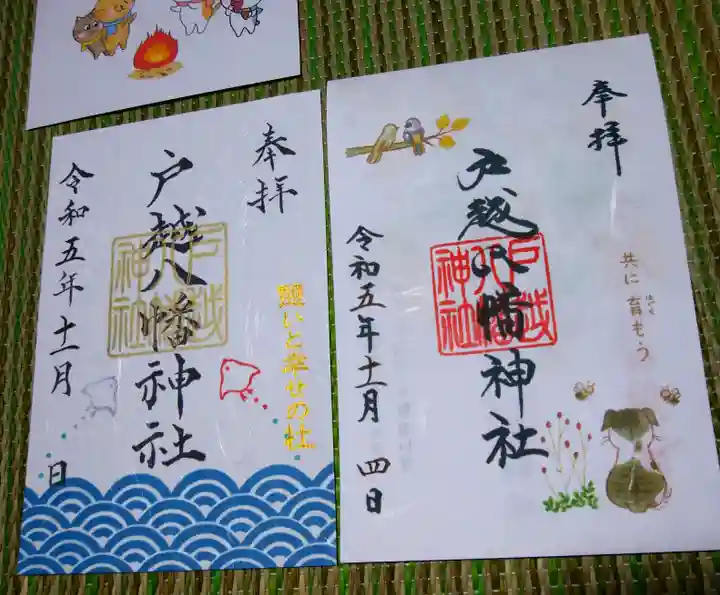 奉拝
戸越八幡神社
戸越八幡神社
願いと幸せの社
令和五年十一月 日
奉拝
戸越八幡神社
戸越八幡神社
共に育もう
はぐく
令和五年十一月四日